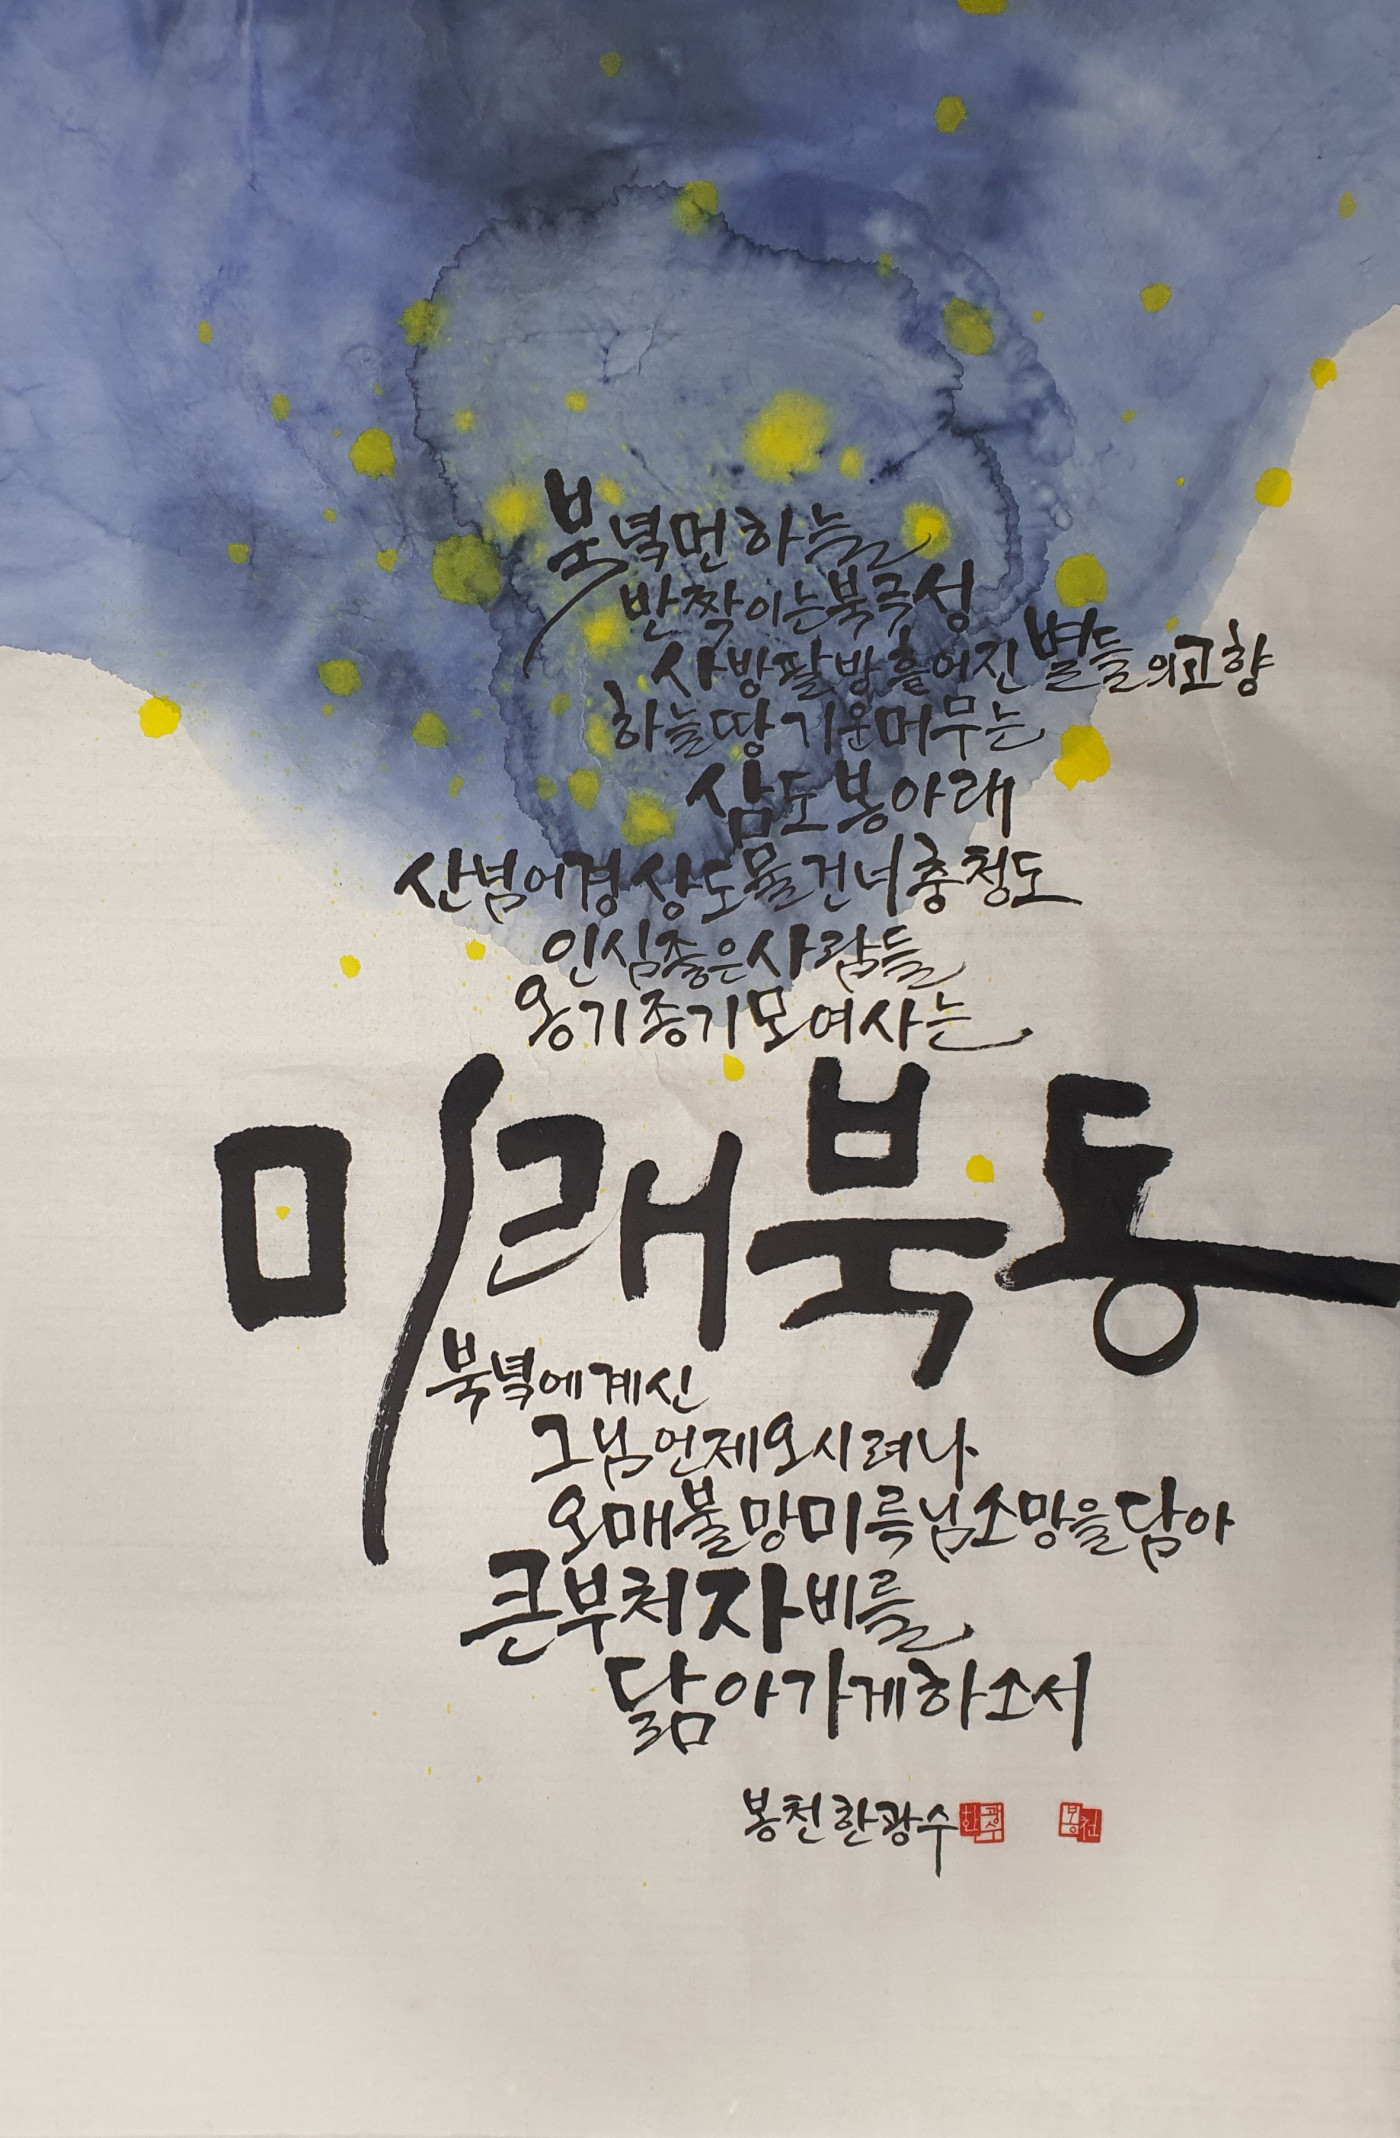 북녘 먼 하늘
반짝이는 북극성
사방팔방 흩어진 별들의 고향
하늘 땅 기운 머무는
삼도봉 아래
산 넘어 경상도 물 건너 충청도
인심 좋은 사람들
옹기종기 모여 사는
미래북동
북녘에 계신
그님 언제 오시려나
오매불망 미륵님 소망을 담아
큰 부처 자비를
닮아가게 하소서
봉천 한광수 한광수 봉천